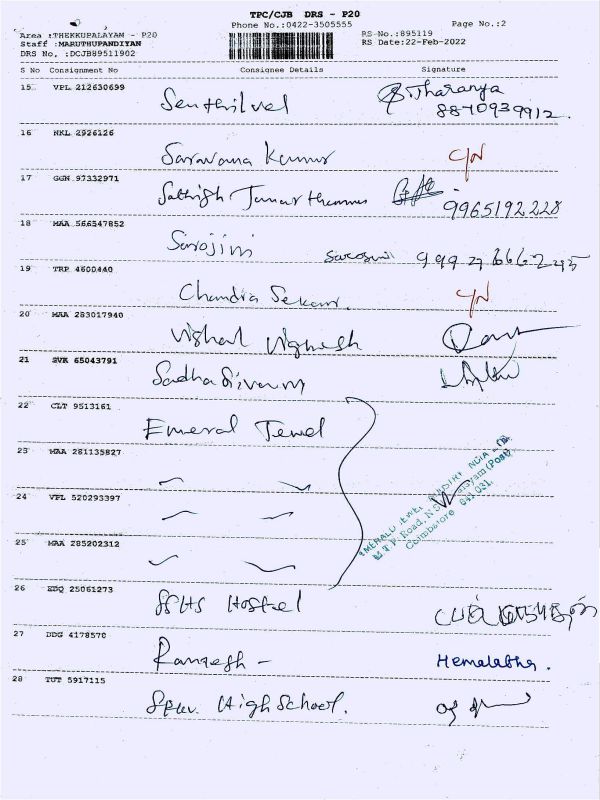 TPC/CJB DRS - P20
Phone No.:0422-3505555
Page No.:2
Area :THEKKUPALAYAM - P20
RS No.:895119
Staff :MARUTHUPANDIYAN
RS Date:22-Feb-2022
DRS No. :DCJB89511902
S No Consignment No Consignee Details Signature
15 VPL 212630699
Senthilvel Tharanya
8870939912.
16 NKL 2926126
Saravana Kumar C/N
17 GGN 97332971
Sathish
9965192228
18 MAA 566547852
Sarojini 9992766624
19 TRP 4600440
Chandra Sekar. C/N
20 MAA 283017940
Vishal Vighesh
21 SVK 65043791
Sadha Sivam
22 CLT 9513161
Emeral Jewel
23 MAA 281135827
EMERALD JEWEL INDUSTRY INDIA
M.T.P. Road, (Post),
Coimbatore 641 031.
24 VPL 520293397
25 MAA 285202312
26 EDQ 25061273
SSHS Hostel
27 DDG 4178570
Ramesh - Hemalatha.
28 TUT 5917115
High School.